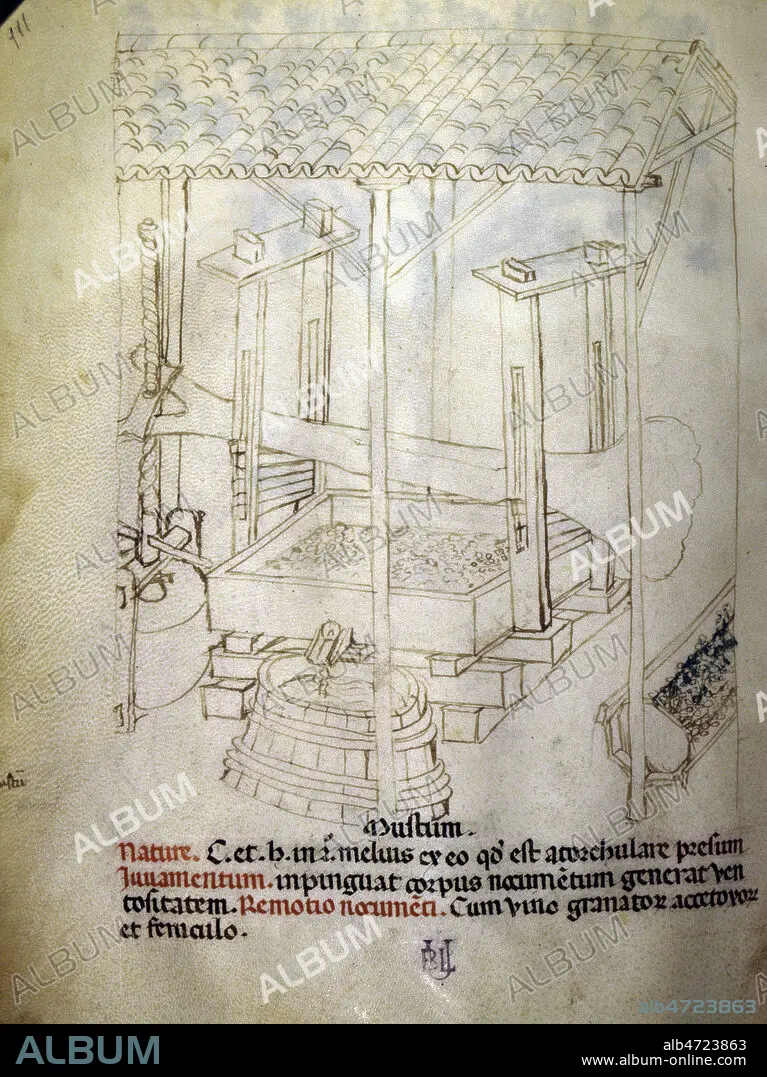 Mustum.
Nature. C. et. h. in 2̊. melius ex eo qđ est a torchulare presum
Iuuamentum. inpinguat corpus nocumētum generat ven
tositatem. Remotio nocumēti. Cum vino granatoꝝ accetoꝝoꝝ
et feniculo.
ALBUM
alb4723863
ALBUM
alb4723863
www.album-online.com